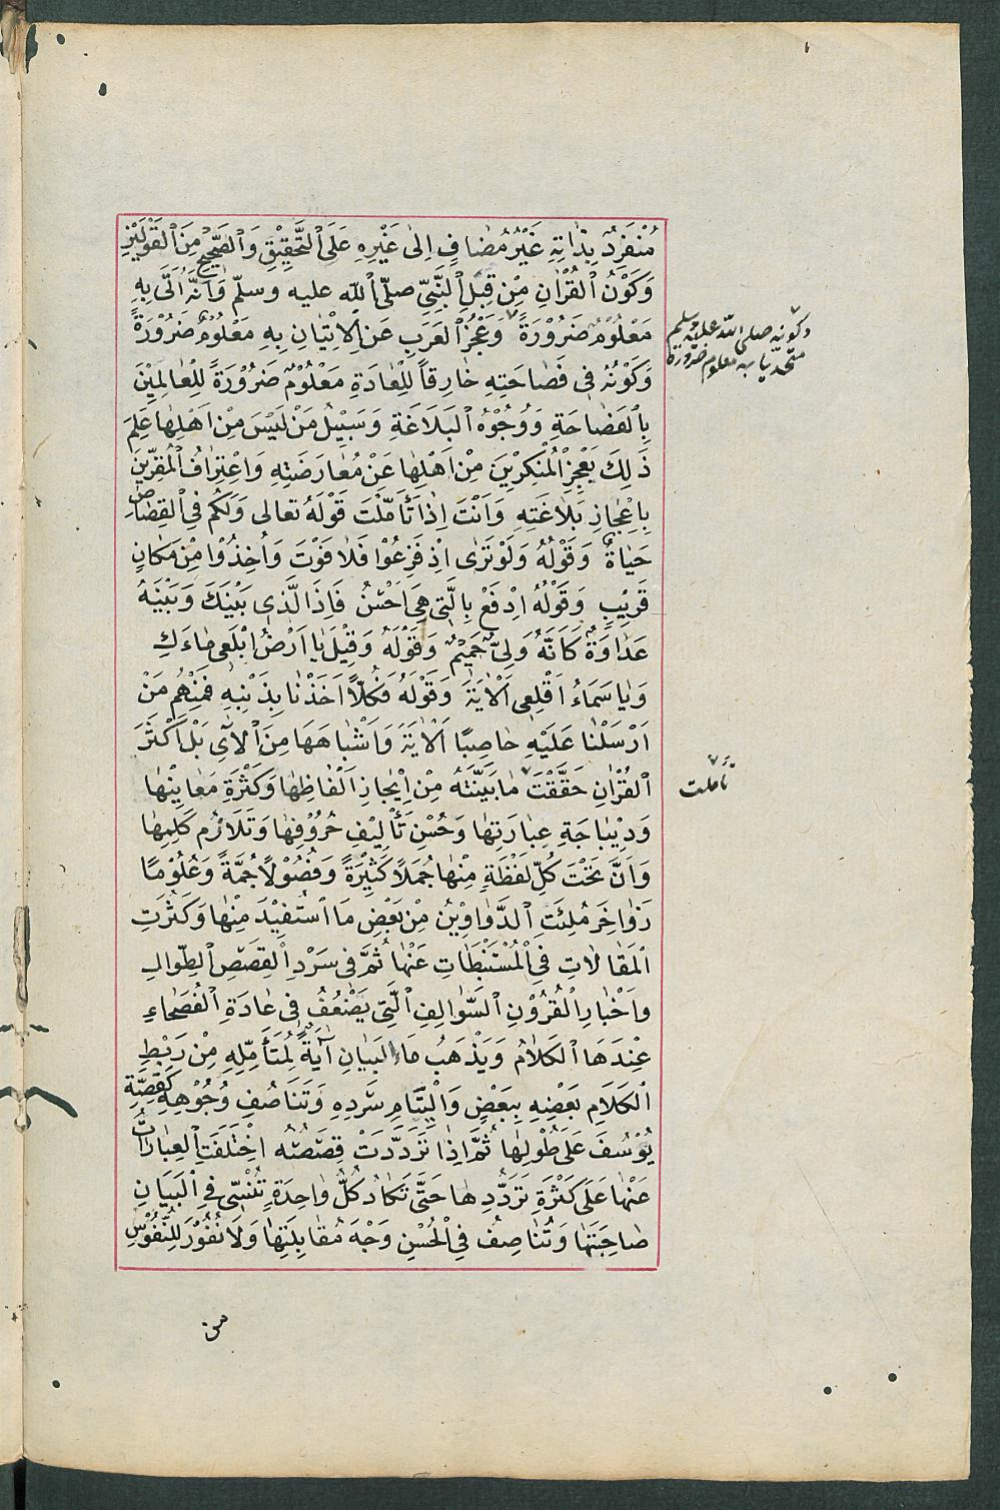 مُنْفَرِدٌ بِذَاتِهِ غَيْرُ مُضَافٍ اِلٰى غَيْرِهِ عَلَى التَّحْقِيْقِ وَالصَّحِيْحِ مِنَ الْقَوْلَيْنِ
وَكَوْنُ الْقُرْاٰنِ مِنْ قِبَلِ النَّبِيِّ صلّى اللّه عليه وسلّم وَاَنَّهُ اَتٰى بِهِ
مَعْلُوْمٌ ضَرُوْرَةً وَعَجْزُ الْعَرَبِ عَنِ الْاِتْيَانِ بِهِ مَعْلُوْمٌ ضَرُوْرَةً
وَكَوْنُهُ فِى فَصَاحَتِهِ خَارِقاً لِلْعَادَةِ مَعْلُوْمٌ ضَرُوْرَةً لِلْعَالِمِيْنَ
بِالْفَصَاحَةِ وَوُجُوْهِ الْبَلَاغَةِ وَسَبِيْلُ مَنْ لَيْسَ مِنْ اَهْلِهَا عِلْمُ
ذٰلِكَ بِعَجْزِ الْمُنْكِرِيْنَ مِنْ اَهْلِهَا عَنْ مُعَارَضَتِهِ وَاعْتِرَافِ الْمُقِرِّيْنَ
بِاِعْجَازِ بَلَاغَتِهِ وَاَنْتَ اِذَا تَأَمَّلْتَ قَوْلَهُ تعالى وَلَكُمْ فِى الْقِصَاصِ
حَيَاةٌ وَقَوْلُهُ وَلَوْ تَرٰى اِذْ فَزِعُوْا فَلَا فَوْتَ وَاُخِذُوْا مِنْ مَكَانٍ
قَرِيْبٍ وَقَوْلُهُ اِدْفَعْ بِالَّتِى هِىَ اَحْسَنُ فَاِذَا الَّذِى بَيْنَكَ وَبَيْنَهُ
عَدَاوَةٌ كَاَنَّهُ وَلِىٌّ حَمِيْمٌ وَقَوْلَهُ وَقِيْلَ يَا اَرْضُ ابْلَعِى مَاءَكِ
وَيَا سَمَاءُ اَقْلِعِى اَلْاٰيَةَ وَقَوْلَهُ فَكُلّاً اَخَذْنَا بِذَنْبِهِ فَمِنْهُمْ مَنْ
اَرْسَلْنَا عَلَيْهِ حَاصِبًا اَلْاٰيَةَ وَاَشْبَاهَهَا مِنَ الْاٰىِ بَلْ اَكْثَرَ
الْقُرْاٰنِ حَقَّقْتَ مَا بَيَّنْتُهُ مِنْ اِيْجَازِ اَلْفَاظِهَا وَكَثْرَةِ مَعَانِيْهَا
وَدِيْبَاجَةِ عِبَارَتِهَا وَحُسْنِ تَأْلِيْفِ حُرُوْفِهَا وَتَلَاؤُمِ كَلِمِهَا
وَاَنَّ تَحْتَ كُلِّ لَفْظَةٍ مِنْهَا جُمَلاً كَثِيْرَةً وَفُصُوْلاً جُمَّةً وَعُلُوْمًا
زَوَاخِرَ مُلِئَتِ الدَّوَاوِيْنُ مِنْ بَعْضِ مَا اسْتُفِيْدَ مِنْهَا وَكَثُرَتِ
الْمَقَالَاتِ فِى الْمُسْتَنْبَطَاتِ عَنْهَا ثُمَّ فِى سَرْدِ الْقِصَصِ الطِّوَالِ
وَاَخْبَارِ الْقُرُوْنِ السَّوَالِفِ الَّتِى يَضْعُفُ فِى عَادَةِ الْفُصَحَاءِ
عِنْدَهَا الْكَلَامُ وَيَذْهَبُ مَاءُ الْبَيَانِ اٰيَةٌ لِمُتَأَمِّلِهِ مِنْ رَبْطِ
الْكَلَامِ بَعْضِهِ بِبَعْضٍ وَالْتِيَامِ سَرْدِهِ وَتَنَاصُفِ وُجُوْهِهِ كَقِصَّةِ
يُوْسُفَ عَلَى طُوْلِهَا ثُمَّ اِذَا تَرَدَّدَتْ قِصَصُهُ اخْتَلَفَتِ الْعِبَارَاتُ
عَنْهَا عَلَى كَثْرَةِ تَرَدُّدِهَا حَتَّى تَكَادُ كُلُّ وَاحِدَةٍ تُنَسِّى فِى الْبَيَانِ
صَاحِبَتَهَا وَتُنَاصِفُ فِى الْحُسْنِ وَجْهَ مُقَابِلَتِهَا وَلَا نُفُوْرَ لِلنُّفُوْسِ
من
وكونه صلى اللّه عليه وسلم
متحدّيا به معلوم ضرورة
تأملت